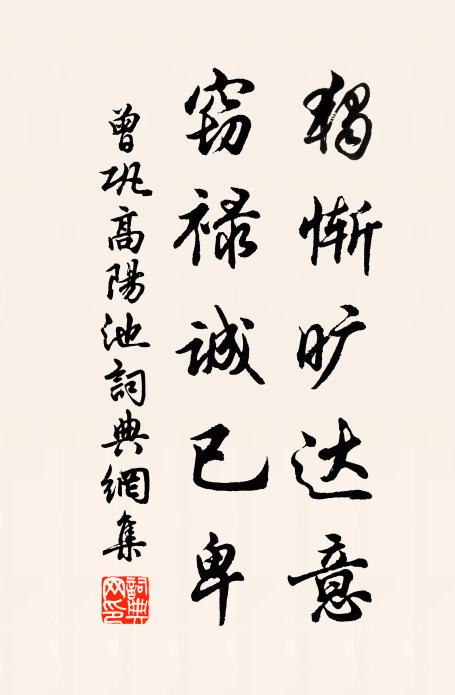 独惭旷达意
窃禄诚已卑
曾巩高陽池詞典網集
詞典网印